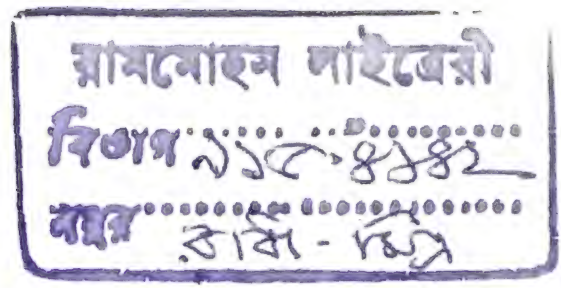 রামমোহন লাইব্রেরী
বিভাগ ৯১৫.৪১৪২
নম্বর